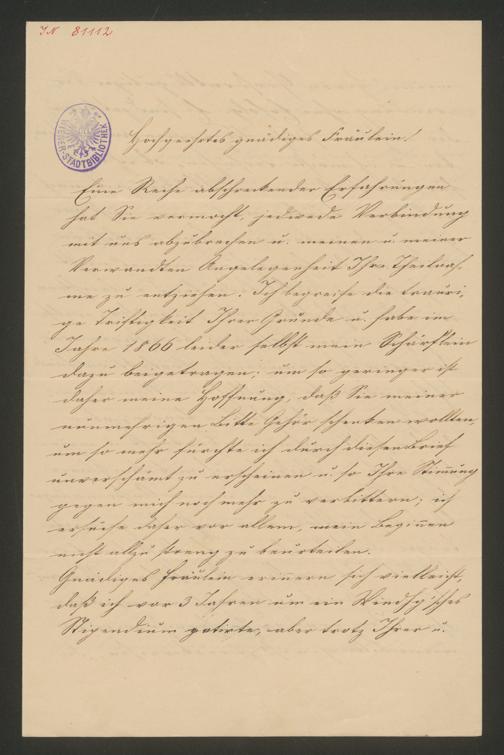 IN 81112
WIENER-STADTBIBLIOTHEK
Hochgeehrtes gnädiges Fräulein!
Eine Reihe abschreckender Erfahrungen
hat Sie vermocht, jedwede Verbindung
mit uns abzubrechen u. meinen u. meiner
Verwandten Angelegenheit Ihre Theilnah-
me zu entziehen. Ich begreife die trauri-
ge Triftigkeit Ihrer Gründe u. habe im
Jahre 1866 leider selbst mein Schärflein
dazu beigetragen; um so geringer ist
daher meine Hoffnung, daß Sie meiner
nunmehrigen Bitte Gehör schenken wollten,
um so mehr fürchte ich durch diesen Brief
unverschämt zu erscheinen u. so Ihre Stimmung
gegen mich noch mehr zu verbittern; ich
ersuche daher vor allem, mein Beginnen
nicht allzu streng zu beurteilen.
Gnädiges Fräulein erinnern sich vielleicht,
daß ich vor 3 Jahren um ein Windhg'sches
Stipendium petirte, aber trotz Ihrer u.